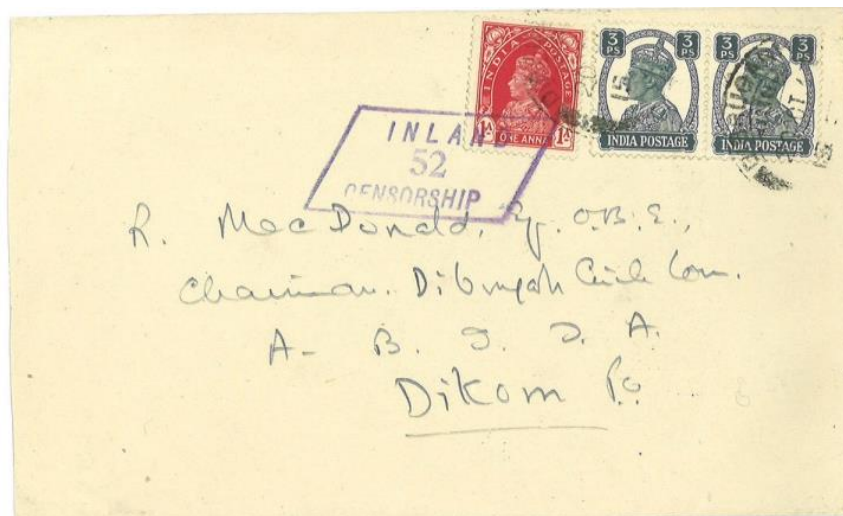 INDIA POSTAGE
1A ONE ANNA 1A
3 PS 3 PS
INDIA POSTAGE
3 PS 3 PS
INDIA POSTAGE
INLAND
52
CENSORSHIP
R. MacDonald, Esq. O.B.E.,
Chairman. Dibrugarh Circle Com.
A. B. I. T. A.
Dikom P.O